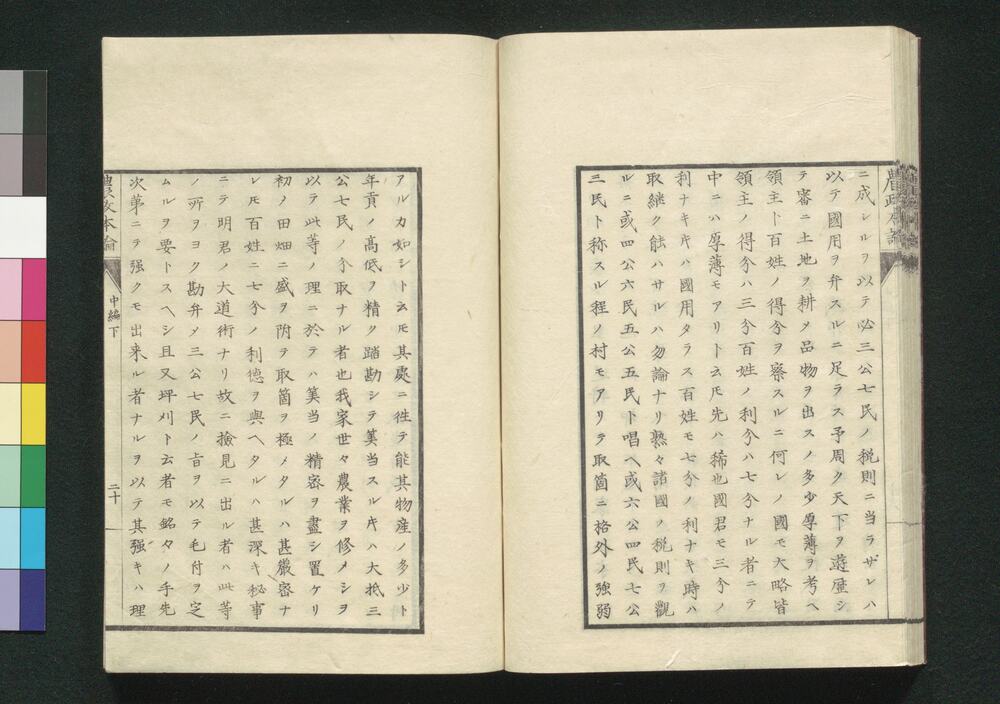 ニ成レルヲ以テ必三公七民ノ税則ニ当ラザレハ
以テ國用ヲ弁スルニ足ラス予周ク天下ヲ遊歴シ
テ審ニ土地ヲ耕メ品物ヲ出スノ多少厚薄ヲ考ヘ
領主ト百姓ノ得分ヲ察スルニ何レノ國モ大略皆
領主ノ得分ハ三分百姓ノ利分ハ七分ナル者ニテ
中ニハ厚薄モアリト云𪜈先ハ稀也國君モ三分ノ
利ナキ𪜈ハ國用タラス百姓モ七分ノ利ナキ時ハ
取継ク能ハサルハ勿論ナリ熟々諸國ノ税則ヲ觀
ルニ或四公六民五公五民ト唱ヘ或六公四民七公
三民ト称スル程ノ村モアリテ取箇ニ格外ノ強弱
アルカ如シト云𪜈其處ニ往テ能其物産ノ多少ト
年貢ノ高低ノ精ク踏勘シテ筭当スルキハ大抵三
公七民ノ分取ナル者也我家世々農業ヲ修メシヲ
以テ此等ノ理ニ於テハ筭当ノ精密ヲ盡シ置ケリ
初ノ田畑ニ盛ヲ附テ取箇ヲ極メタルハ甚嚴密ナ
レ𪜈百姓ニ七分ノ利德ヲ與ヘタルハ甚深キ秘事
ニテ明君ノ大道術ナリ故ニ撿見ニ出ル者ハ此等
ノ所ヲヨク勘弁メ三公七民ノ旨ヲ以テ毛付ヲ定
ムルヲ要トスヘシ且又坪刈ト云者モ銘々ノ手先
次第ニテ強クモ出来ル者ナルヲ以テ其強キハ理
農政本論
中編下
二十